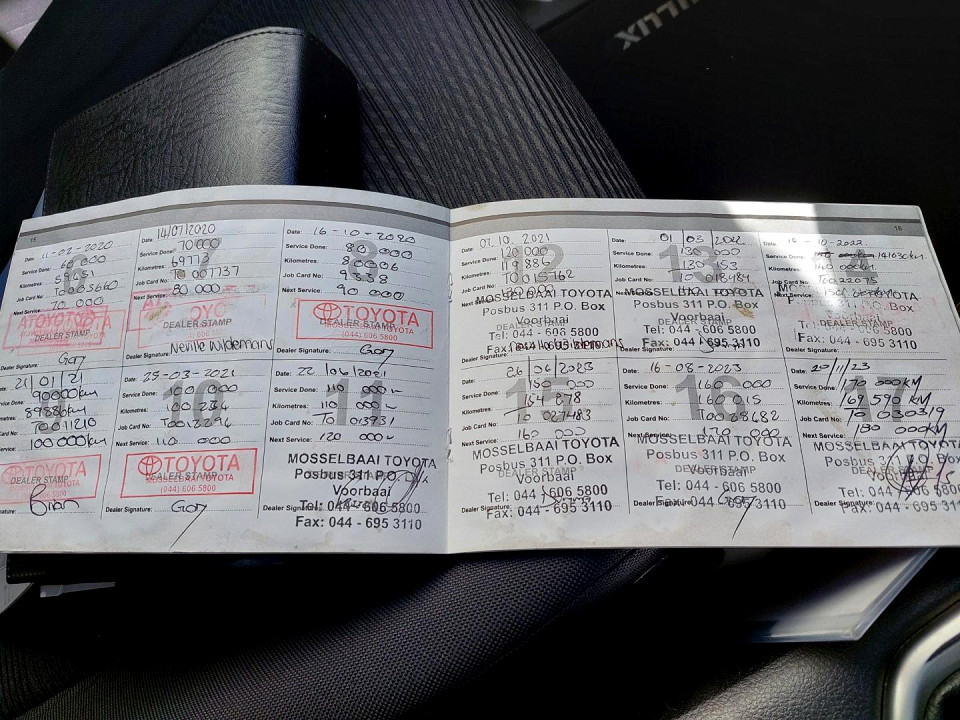 15
Date: 11-02-2020
Service Done: 60 000
Kilometres: 59651
Job Card No: T003660
Next Service: 70 000
TOYOTA
DEALER STAMP
Gary
7
Date: 14/07/2020
Service Done: 70 000
Kilometres: 69773
Job Card No: T0 007737
Next Service: 80 000
DEALER STAMP
Dealer Signature: Neville Wildemans
8
Date: 16-10-2020
Service Done: 80 000
Kilometres: 80006
Job Card No: 9838
Next Service: 90 000
TOYOTA
DEALER STAMP
(044) 606 5800
Dealer Signature: Gary
21/01/21
90000km
89886km
T0011210
100 000km
TOYOTA
DEALER STAMP
(044) 606 5800
Brian
10
Date: 23-03-2021
Service Done: 100 000
Kilometres: 100 234
Job Card No: T0012296
Next Service: 110 000
TOYOTA
DEALER STAMP
MOSSELBAAI TOYOTA
(044) 606 5800
Dealer Signature: Gary
11
Date: 22/06/2021
Service Done: 110 000
Kilometres: 110 000
Job Card No: T0 013931
Next Service: 120 000
MOSSELBAAI TOYOTA
Posbus 311 P.O. Box
Voorbaai
Tel: 044 - 606 5800
Fax: 044 - 695 3110
Dealer Signature:
12
Date: 07.10.2021
Service Done: 120 000
Job Card No: T0015762
MOSSELBAAI TOYOTA
Posbus 311 P.O. Box
Voorbaai
DEALER STAMP
Tel: 044 - 606 5800
Dealer Signature:
13
Date: 01/03/2022
Service Done: 130 000
Kilometres: 130 153
Job Card No: T0 018484
MOSSELBAAI TOYOTA
Posbus 311 P.O. Box
Voorbaai
DEALER STAMP
Tel: 044 - 606 5800
Fax: 044 - 695 3110
Dealer Signature:
16
Date: 18-10-2022
P.O. Box
DEALER STAMP
606 5800
Fax: 044 - 695 3110
15
Date: 26/06/2023
Service Done: 150 000
Kilometres: 154 878
Job Card No: T0 027483
Next Service: 160 000
MOSSELBAAI TOYOTA
Posbus 311 P.O. Box
Voorbaai
DEALER STAMP
Tel: 044 - 606 5800
Fax: 044 - 695 3110
Dealer Signature:
16
Date: 16-08-2023
Service Done: 160 000
Job Card No: T0028682
Next Service: 170 000
MOSSELBAAI TOYOTA
Posbus 311 P.O. Box
Voorbaai
DEALER STAMP
Tel: 044 - 606 5800
Fax: 044 - 695 3110
Dealer Signature: Gary
17
Date: 20/11/23
Service Done: 170 000KM
Kilometres: 169 590 KM
Job Card No: T0 030319
Next Service: 180 000KM
MOSSELBAAI TOYOTA
Posbus 311 P.O. Box
Voorbaai
Tel: 044 - 606 5800
Fax: 044 - 695 3110
Dealer Signature: